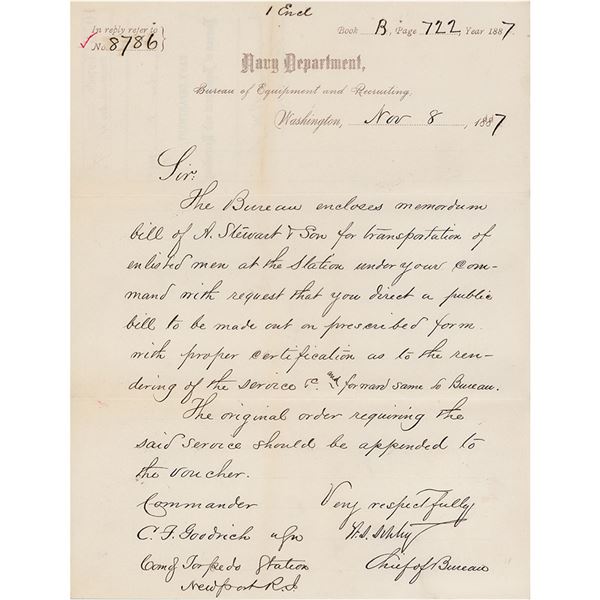 1 Encl
In reply refer to
No. 8786
Book B, Page 722, Year 1887
Navy Department,
Bureau of Equipment and Recruiting,
Washington, Nov 8, 1887
Sir:
The Bureau encloses memordum
bill of A. Stewart & Son for transportation of
enlisted men at the Station under your com-
mand with request that you direct a public
bill to be made out on prescribed form
with proper certification as to the ren-
dering of the service &c. and forward same to Bureau.
The original order requiring the
said service should be appended to
the voucher.
Commander
C. F. Goodrich USN
Comdg Torpedo Station
Newport R.I
Very respectfully
W. S. Schley
Chief of Bureau